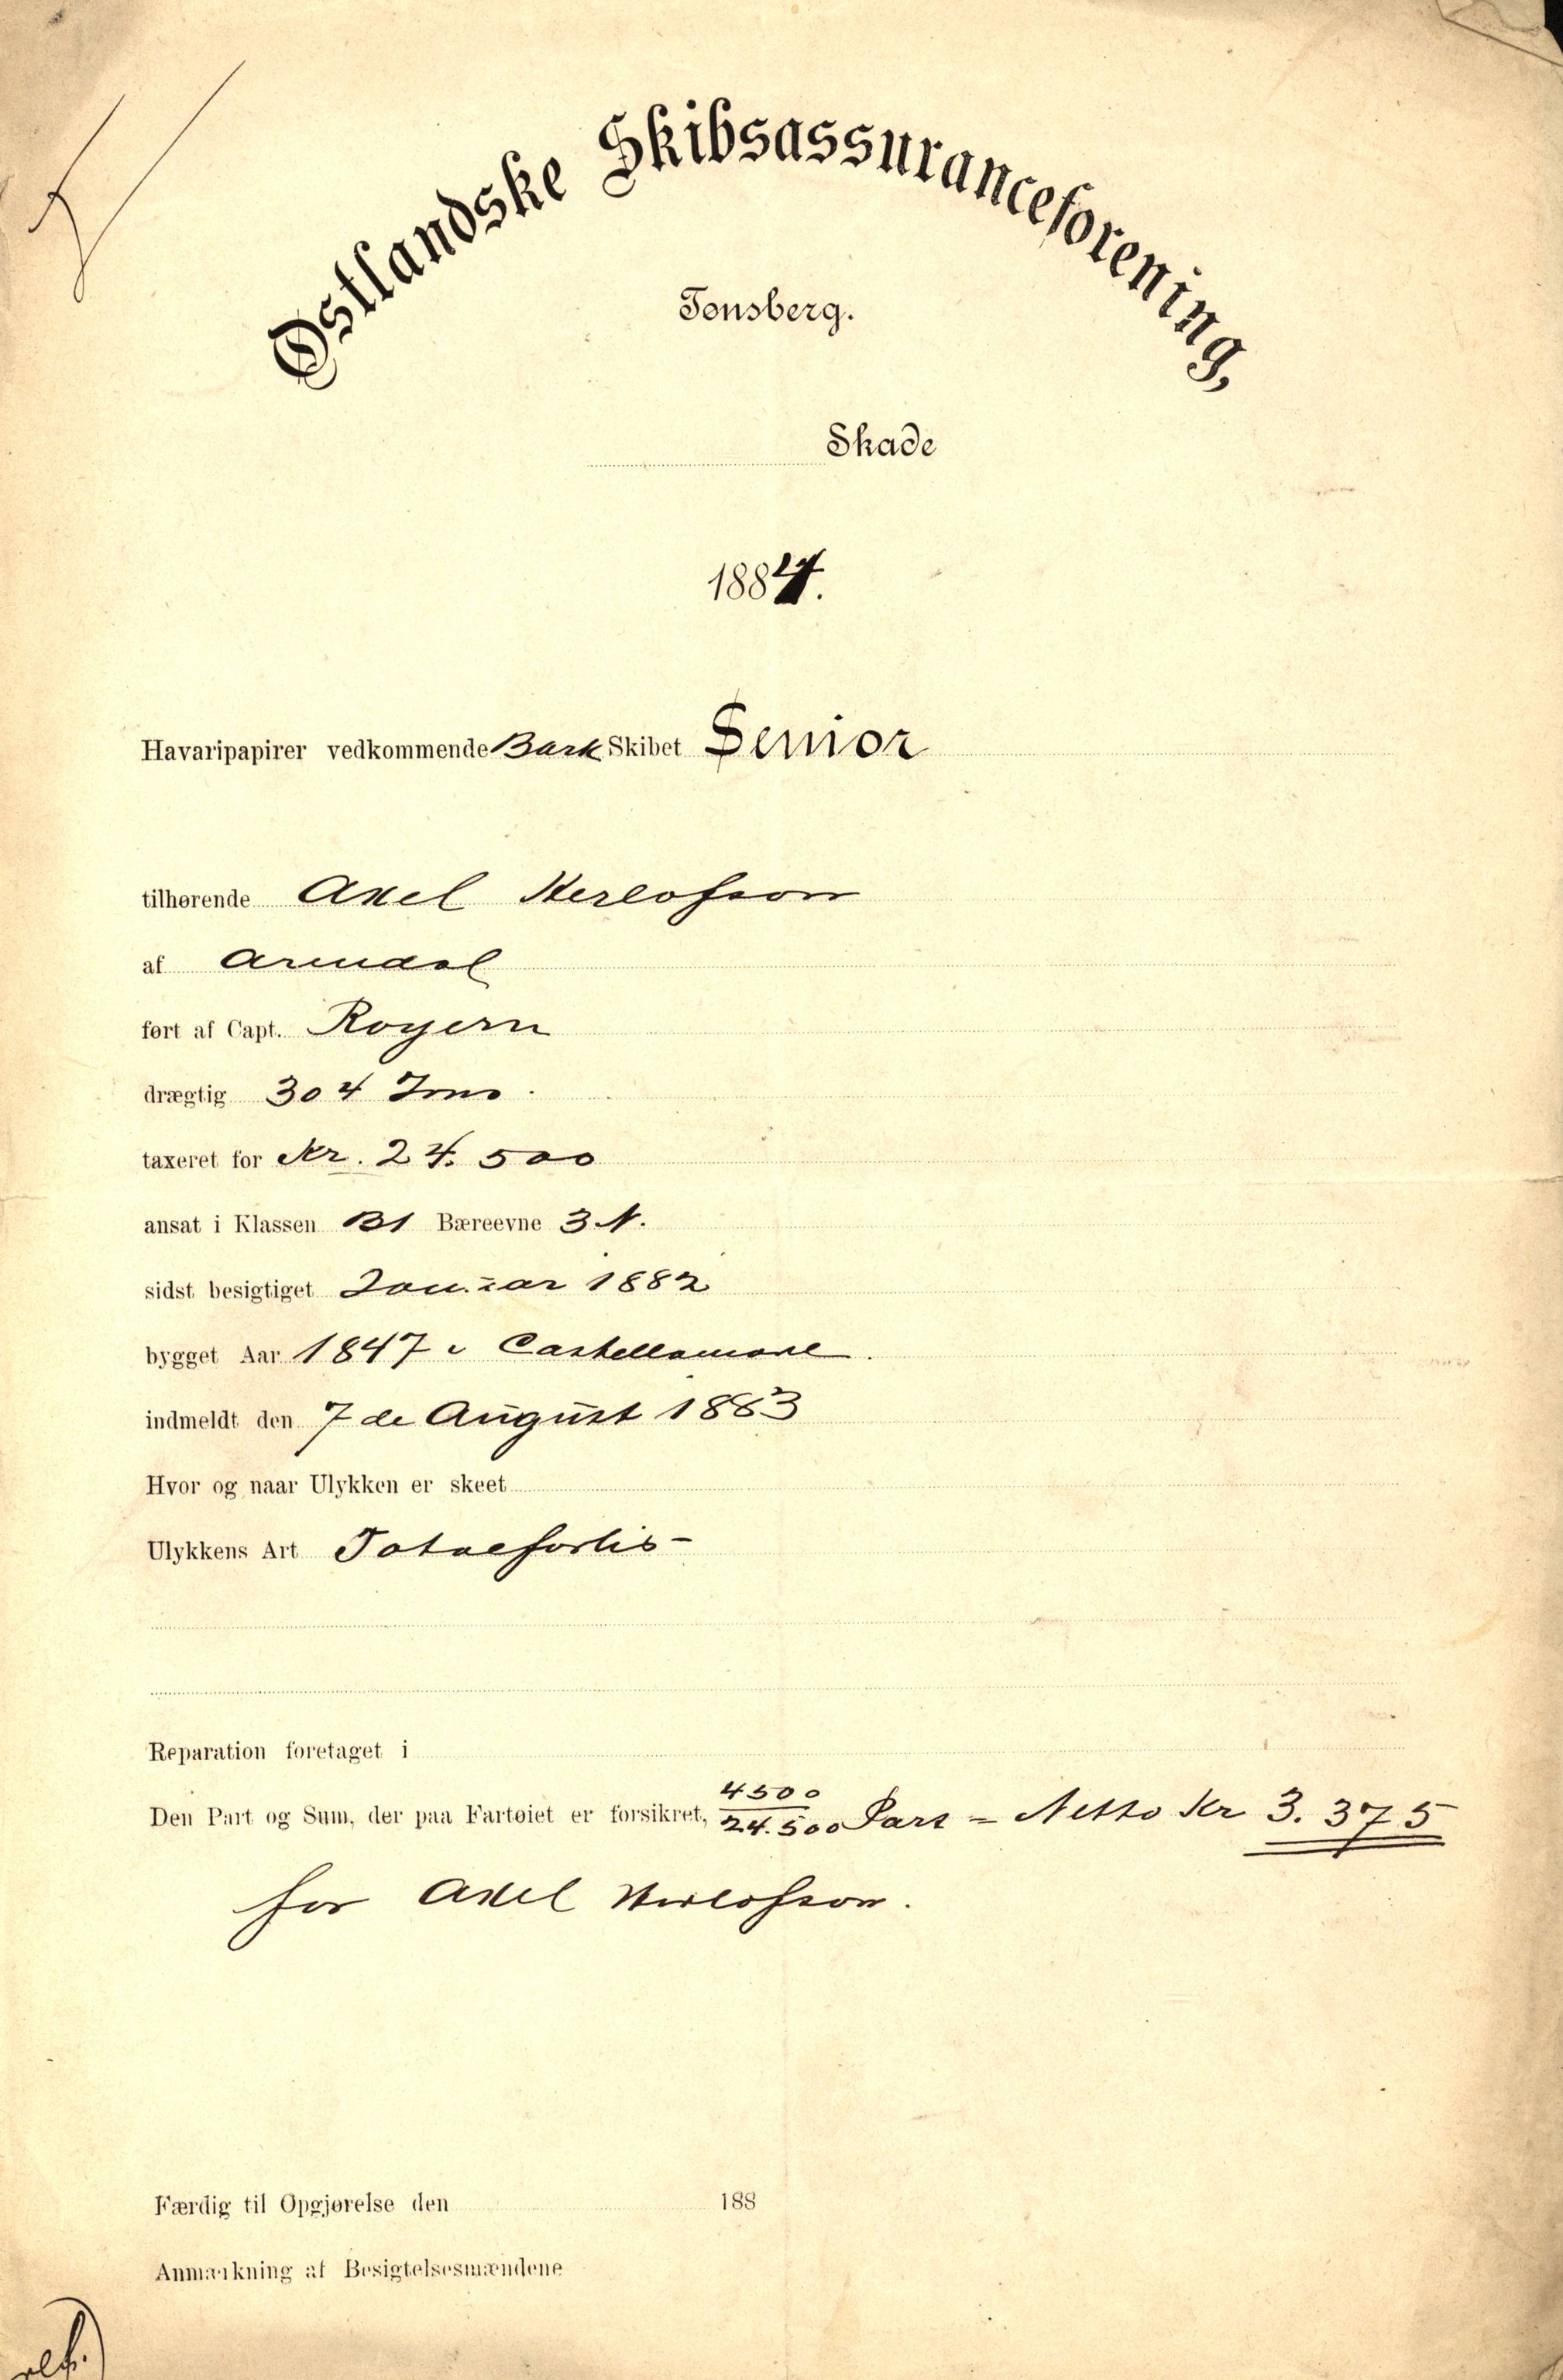 Østlandske Skibsassuranceforening,
Tønsberg.
Skade
1884.
Havaripapirer vedkommende Bark Skibet Senior
tilhørende Axel Herlofson
af Arendal
ført af Capt. Rogern
drægtig 304 Tons.
taxeret for Kr. 24.500
ansat i Klassen B1 Bæreevne 3 N.
sidst besigtiget Januar 1882
bygget Aar 1847 i Castellamare.
indmeldt den 7 de August 1883
Hvor og naar Ulykken er skeet
Ulykkens Art Totalforlis -
Reparation foretaget i
Den Part og Sum, der paa Fartøiet er forsikret, 4500/24.500 Part = Netto Kr 3.375
for Axel Herlofson.
Færdig til Opgjørelse den 188
Anmærkning af Besigtelsesmændene